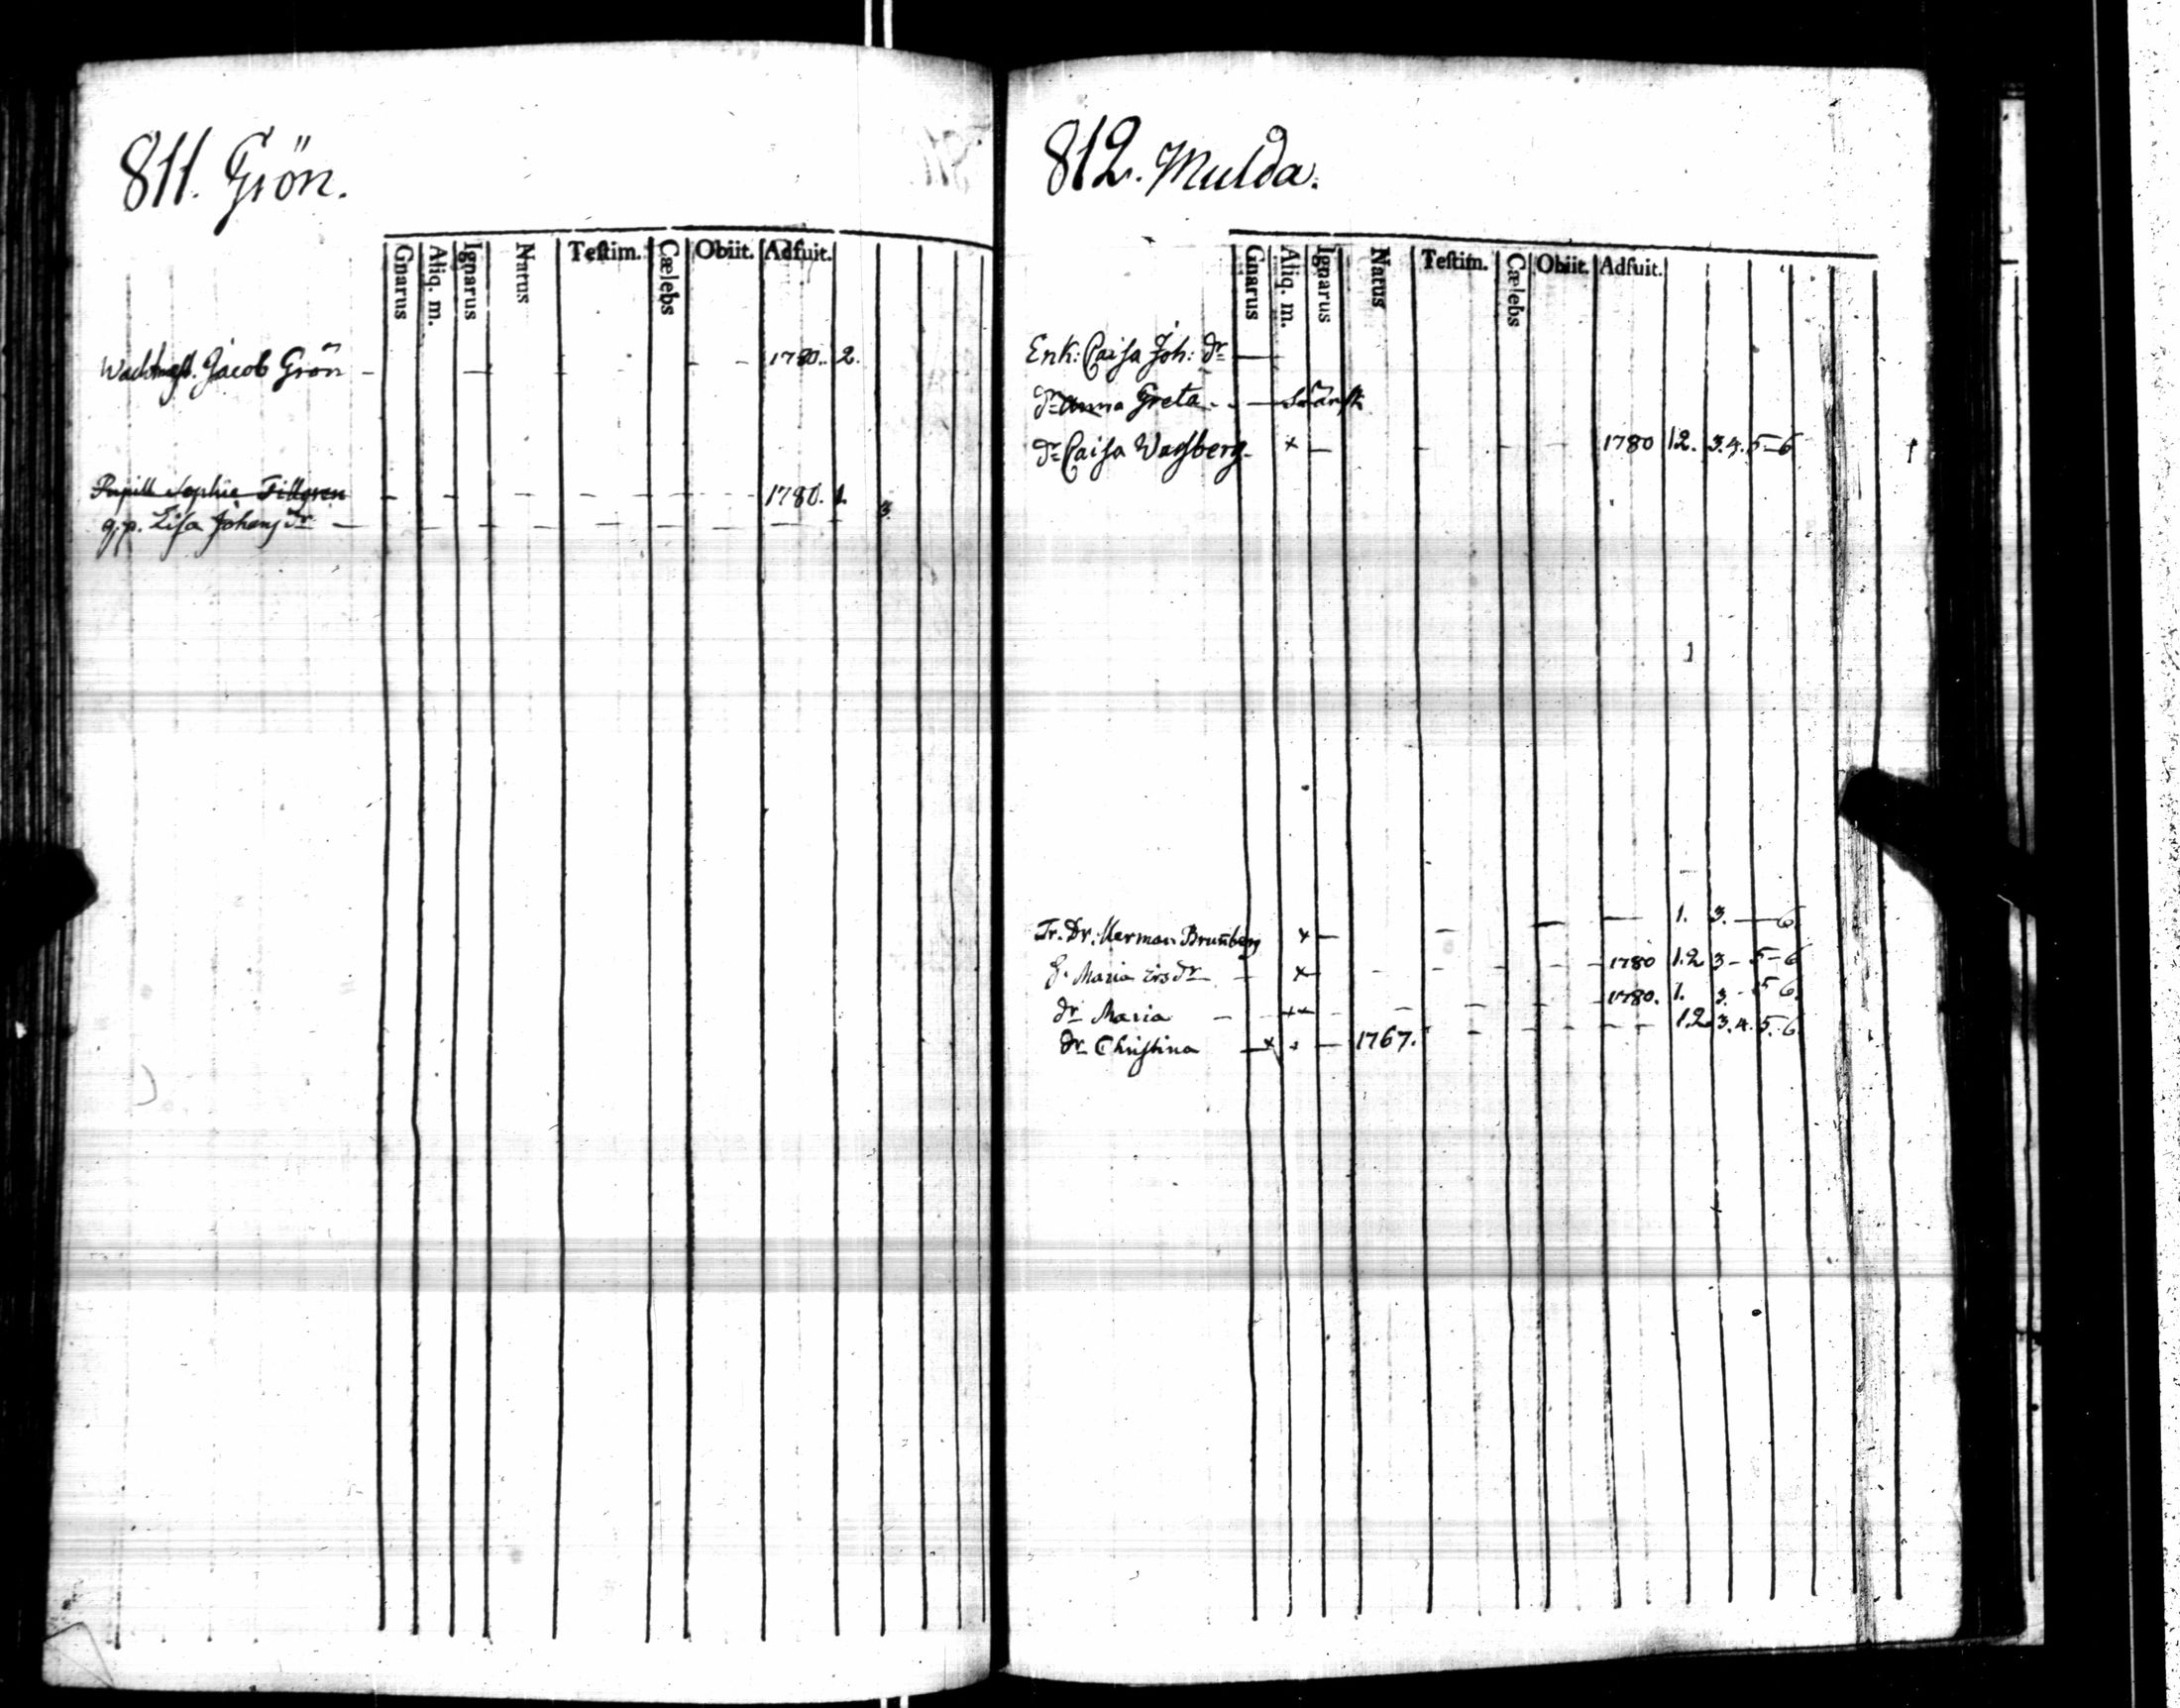 811. Grön.
Gnarus Aliq. m. Ignarus Natus Testim. Cælebs Obiit. Adfuit.
Wachtmest. Jacob Grön - - - - - 1780. 2.
Pupill Sophie Tillgren - - - - - 1780. 1.
q. p. Lisa Johans dr - - - - - - 3.
812. Mulda.
Gnarus Aliq. m. Ignarus Natus Testim. Cælebs Obiit. Adfuit.
Enk: Caisa Joh: dr —
dr Anna Greta - -
dr Caisa Wassberg - x - - - - 1780 12. 3.4. 5-6
Tr. Dr. Herman Brunberg x - - — — 1. 3. — 6.
h. Maria dr - x - - - - - - 1780 1.2 3- 5-6
dr Maria - - - - - - - 1780. 1. 3.- 5 6.
dr Christina x - 1767. - - - - - 1.2 3.4. 5.-6.